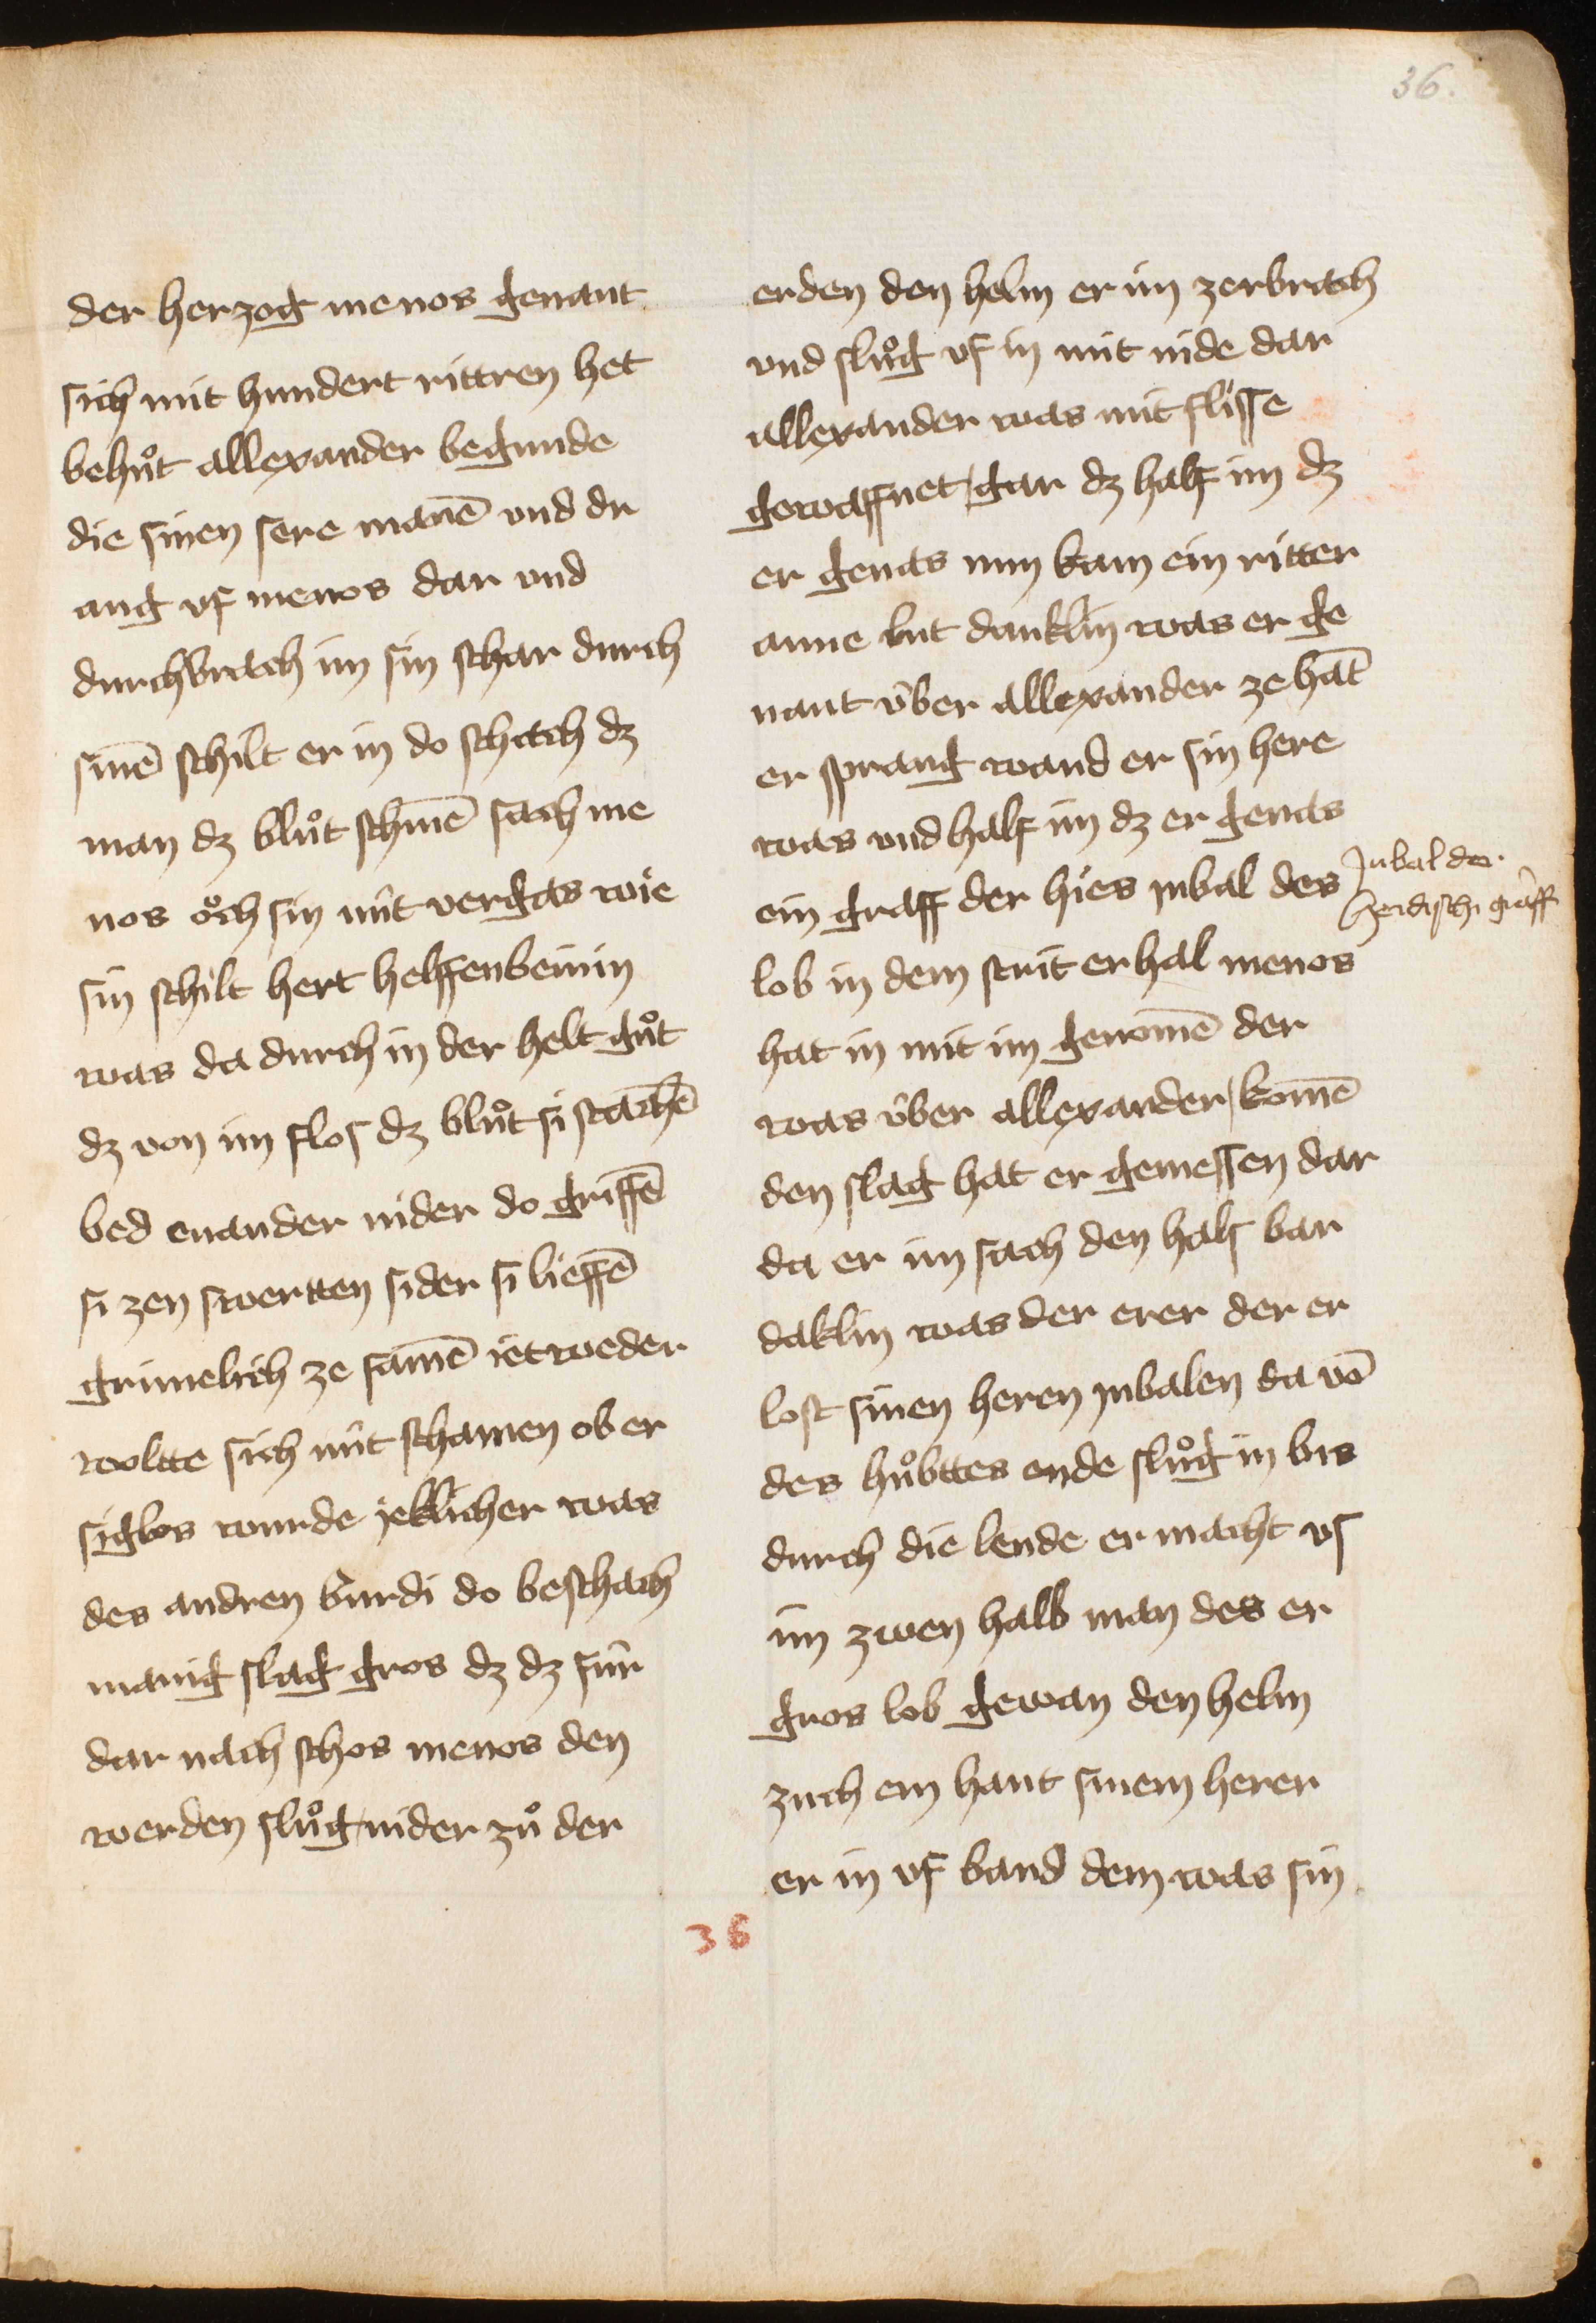 36.
der herzog menos genant
sich mit hundert rittren het
behuͦt allexander begunde
die sinen sere manē vnd dr
ang vf menos dar vnd
durchbrach im sin schar durch
sinē schilt er in do stach dz
man dz bluͦt schinē sach me
nos oͮch sin nût vergas wie
sin schilt hert helffenbeinin
was da durch in der helt guͦt
dz von im flos dz bluͦt si stachē
bed enander nider do griffē
si zen swertten sider si lieffē
grimelich ze samē ietweder
woltte sich nût schamen ob er
siglos wurde jeklicher was
des andren bûrdi do beschach
manig slag gros dz dz fûr
dar nach schos menos den
werden sluͦg nider zuͦ der
erden den helm er im zerbrach
vnd sluͦg vf in mit nide dar
allexander was mit flisse
gewaffnet gar dz half im dz
er genas nun kam ein ritter
anne lut danklin was er ge
nant ûber allexander ze hāt
er sprang wand er sin here
was vnd half im dz er genas
ein graff der hies jubal des
lob in dem strit erhal menos
hat in mit im genomē der
was ûber allexander komē
den slag hat er gemessen dar
da er im sach den hals bar
daklin was der erer der er
lost sinen heren jubalen da vō
des huͦbttes ende sluͦg in bis
durch die lende er macht vs
im zwen halb man des er
gros lob gewan den helm
zuch em hant sinem herer
er in vf band dem was sin
Jubal der
heidischi grâff
36